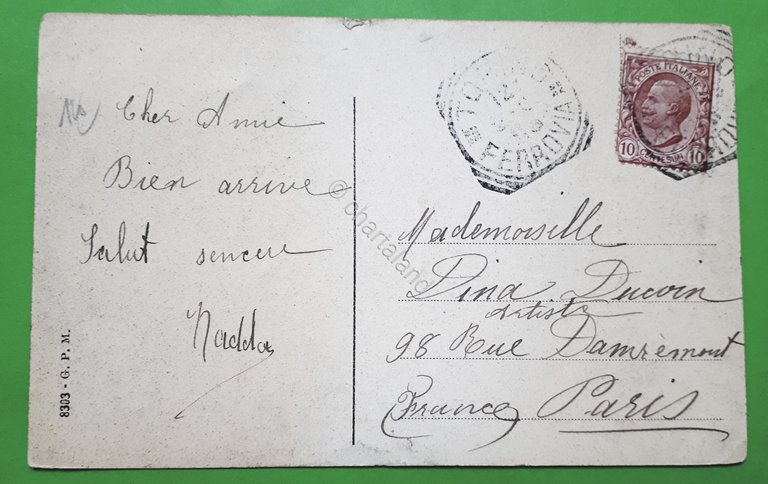 Cher Amie
Bien arrive
Salut sencere
Nadda
8303 - G. P. M.
TORINO
FERROVIA
POSTE ITALIANE
10 10
CENTESIMI
Mademoiselle
Dina Ducoin
Artiste
98 Rue Damrémont
France Paris
© chartaland